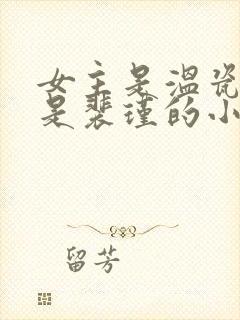 女主是温瓷
是裴瑾的小
留芳